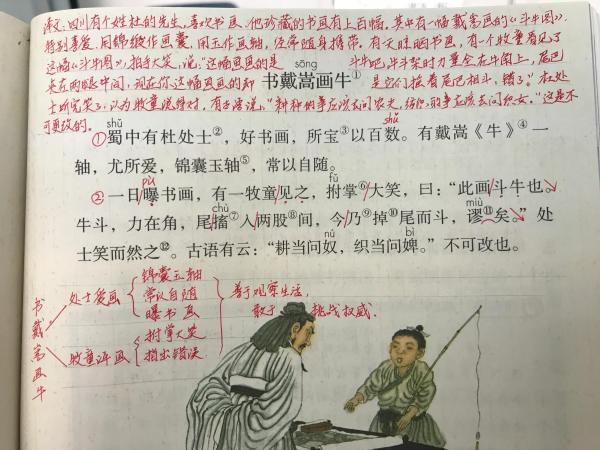 译文：四川有个姓杜的先生，喜欢书画，他珍藏的书画有上百幅，其中有一幅戴嵩画的《斗牛图》，
特别喜爱，用锦缎作画囊，用玉作画轴，经常随身携带，有天晾晒书画，有一个牧童看见了
这幅《斗牛图》，拍手大笑，说："这幅画画的是 斗牛吧，牛斗架时力量全在牛角上，尾巴
夹在两腿中间，现在你这幅画画的却 是它们摇着尾巴相斗，错了！"杜处
士听完笑了，认为牧童说得对，有古语说："耕种的事应该去问农夫，纺织的事应该去问织女。"这是不
可更改的。
书戴嵩画牛①
①蜀中有杜处士②，好书画，所宝③以百数。有戴嵩《牛》④一
轴，尤所爱，锦囊玉轴⑤，常以自随。
②一日曝书画，有一牧童见之，拊掌⑥大笑，曰："此画斗牛也。
牛斗，力在角，尾搐⑦入两股⑧间，今乃⑨掉⑩尾而斗，谬⑪矣。"处
士笑而然之⑫。古语有云："耕当问奴，织当问婢。"不可改也。
书戴嵩画牛
处士爱画
锦囊玉轴
常以自随
曝书画
牧童评画
拊掌大笑
指出错误
善于观察生活，
敢于挑战权威.